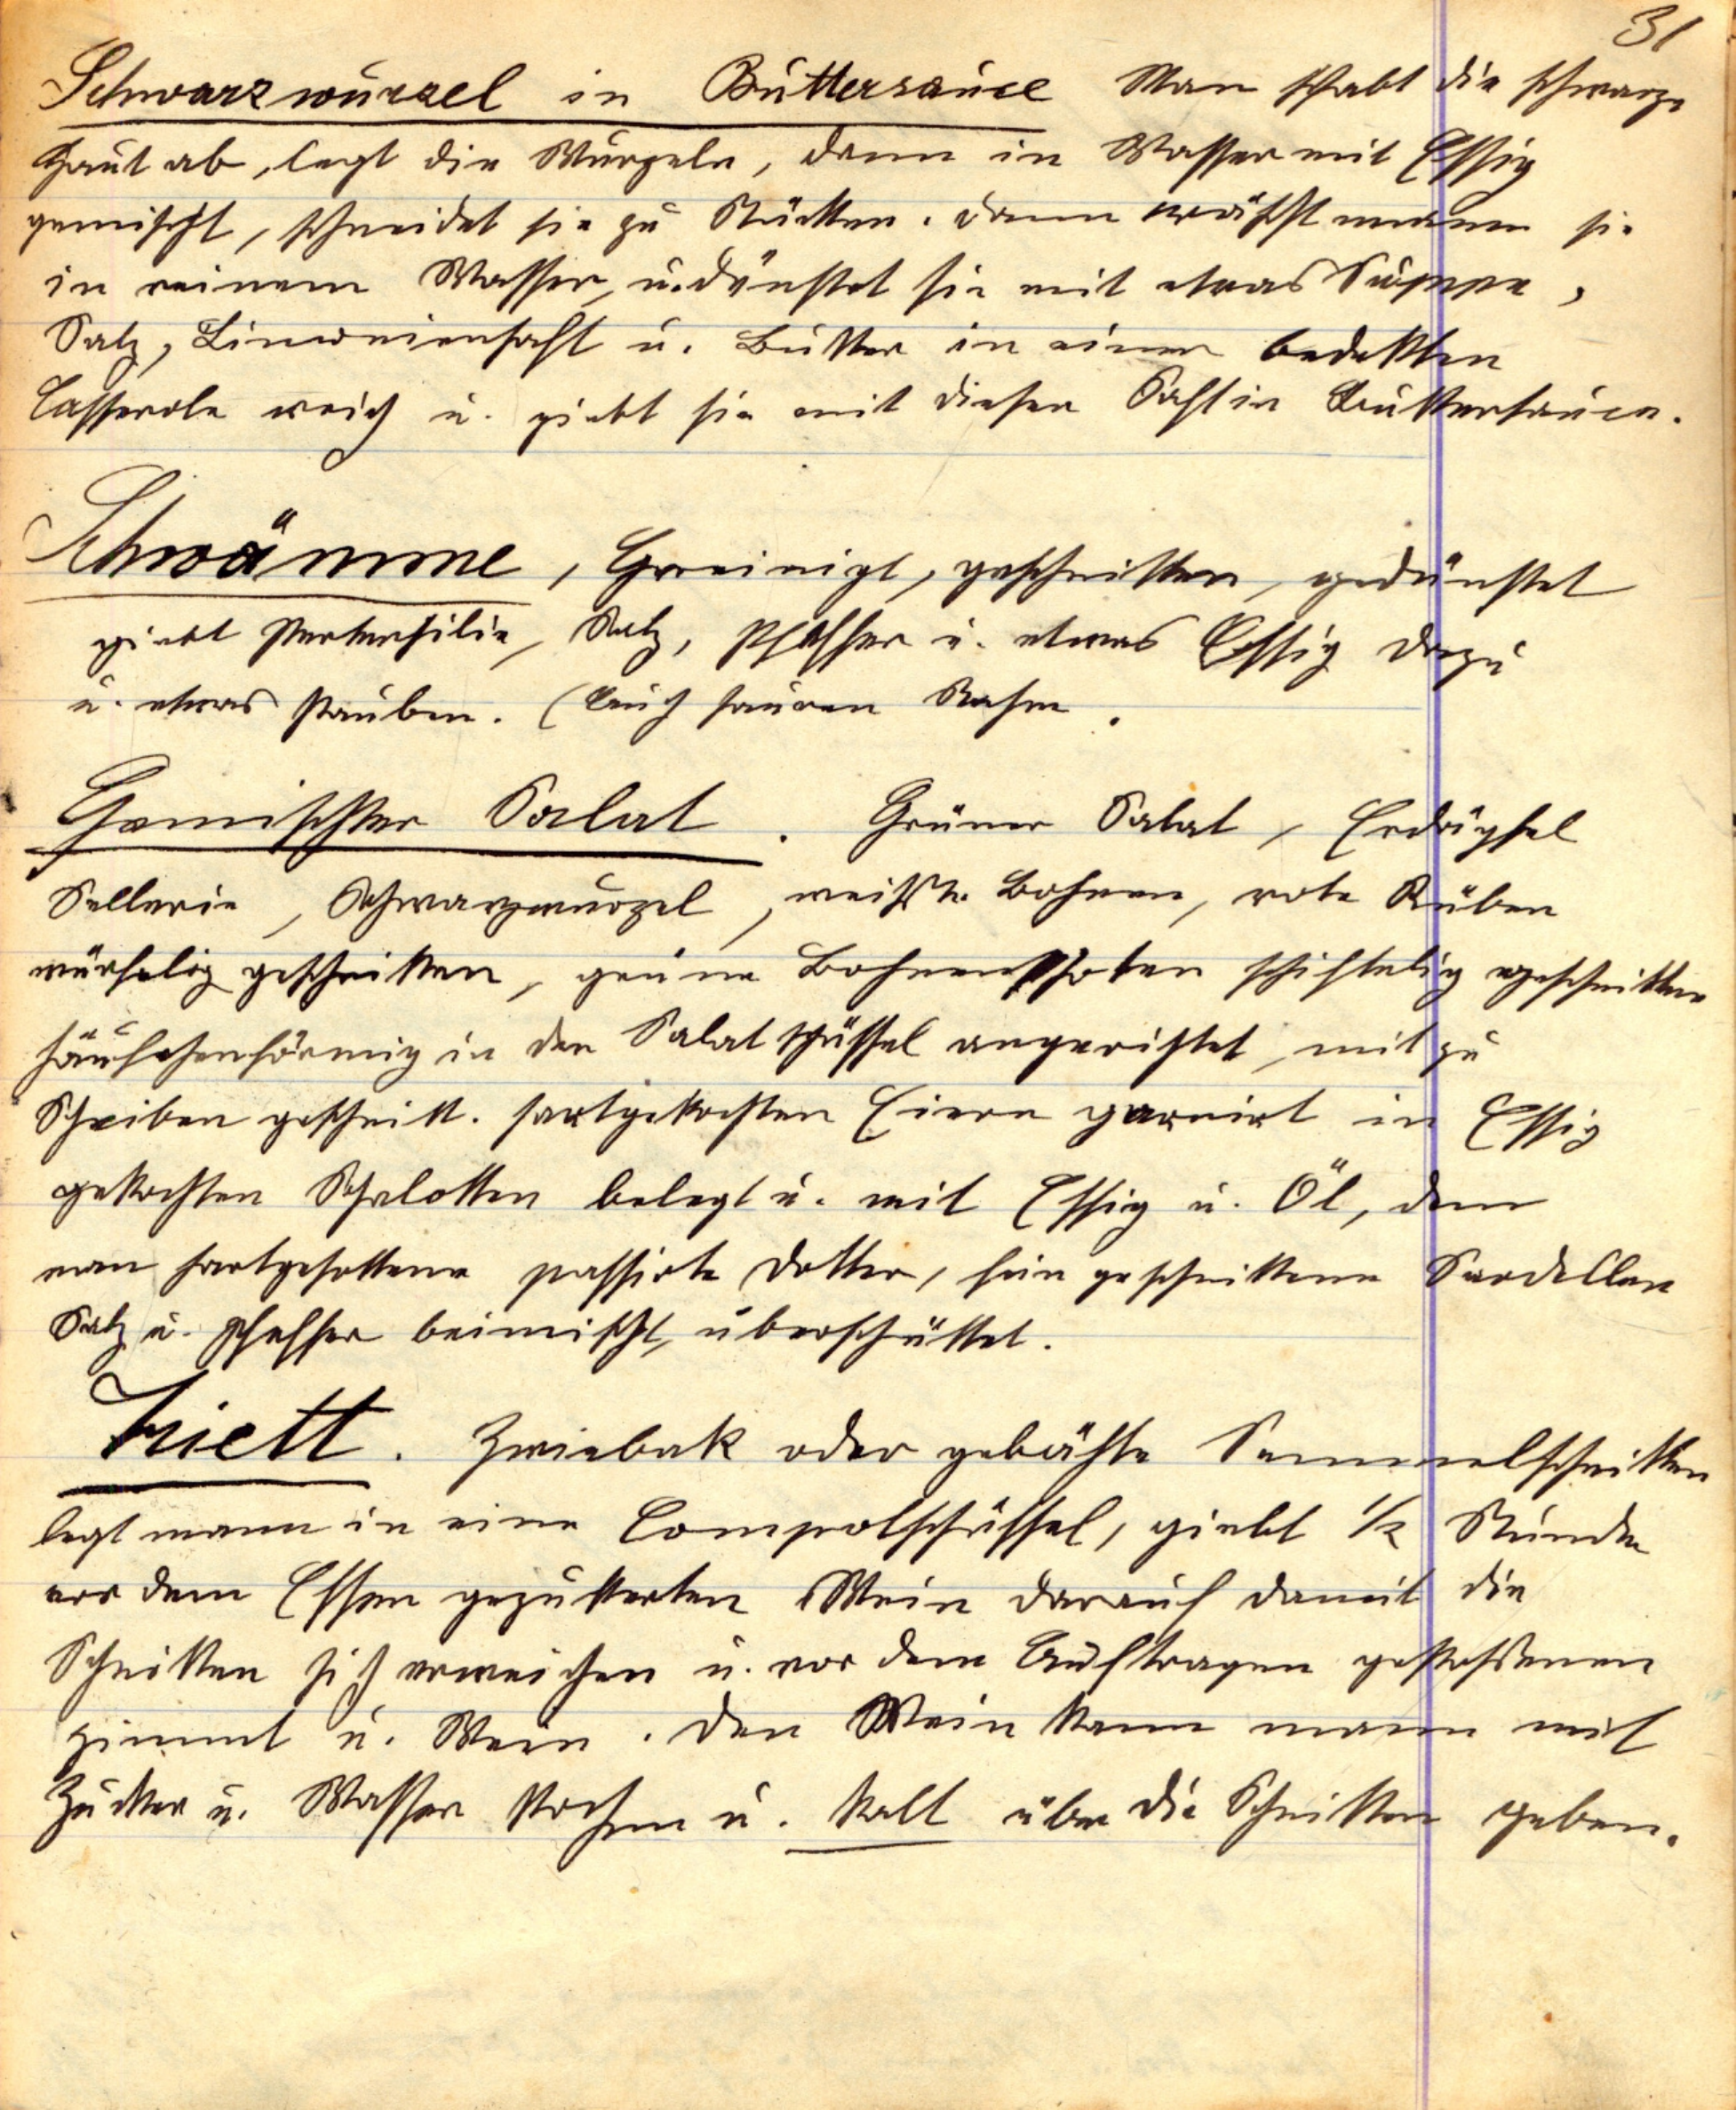 31
Schwarzwurzel in Buttersauce Man schabt die schwarze
Haut ab, legt die Wurzeln, dann in Wasser mit Essig
gemischt, schneidet sie zu Stücken. dann wäscht mann sie
in reinem Wasser, u. dünstet sie mit etwas Suppe,
Salz, Limoniensaft u. Butter in einer bedekten
Casserole weich u. giebt sie mit diesen Saft in Buttersauce.
Schwämme, Gereinigt, geschnitten, gedünstet
giebt Petersilie, Salz, Pfeffer u. etwas Essig dazu
u. etwas stauben. (Auch sauren Rahm.
Gemischter Salat. Grüner Salat, Erdäpfel
Sellerie, Schwarzwurzel, weiße Bohnen, rote Rüben
würfelig geschnitten, grüne Bohnenschoten schiftelig geschnitten
häufchenförmig in der Salatschüssel angerichtet, mit zu
Scheiben geschnitt. hartgekochten Eiern garnirt in Essig
gekochten Schalotten belegt u. mit Essig u. Öl, dem
man hartgesottene passirte Dotter, fein geschnittene Sardellen
Salz u. Pfeffer beimischt, überschüttet.
Triett. Zwiebak oder gebähte Semmelschnitten
legt mann in eine Compotschüssel, giebt 1/2 Stunde
vor dem Essen gezukerten Wein darauf damit die
Schnitten sich erweichen u. vor dem Auftragen gestoßenen
zimmt u. Wein. den Wein kann mann mit
Zucker u. Wasser kochen u. kalt über die Schnitten geben.